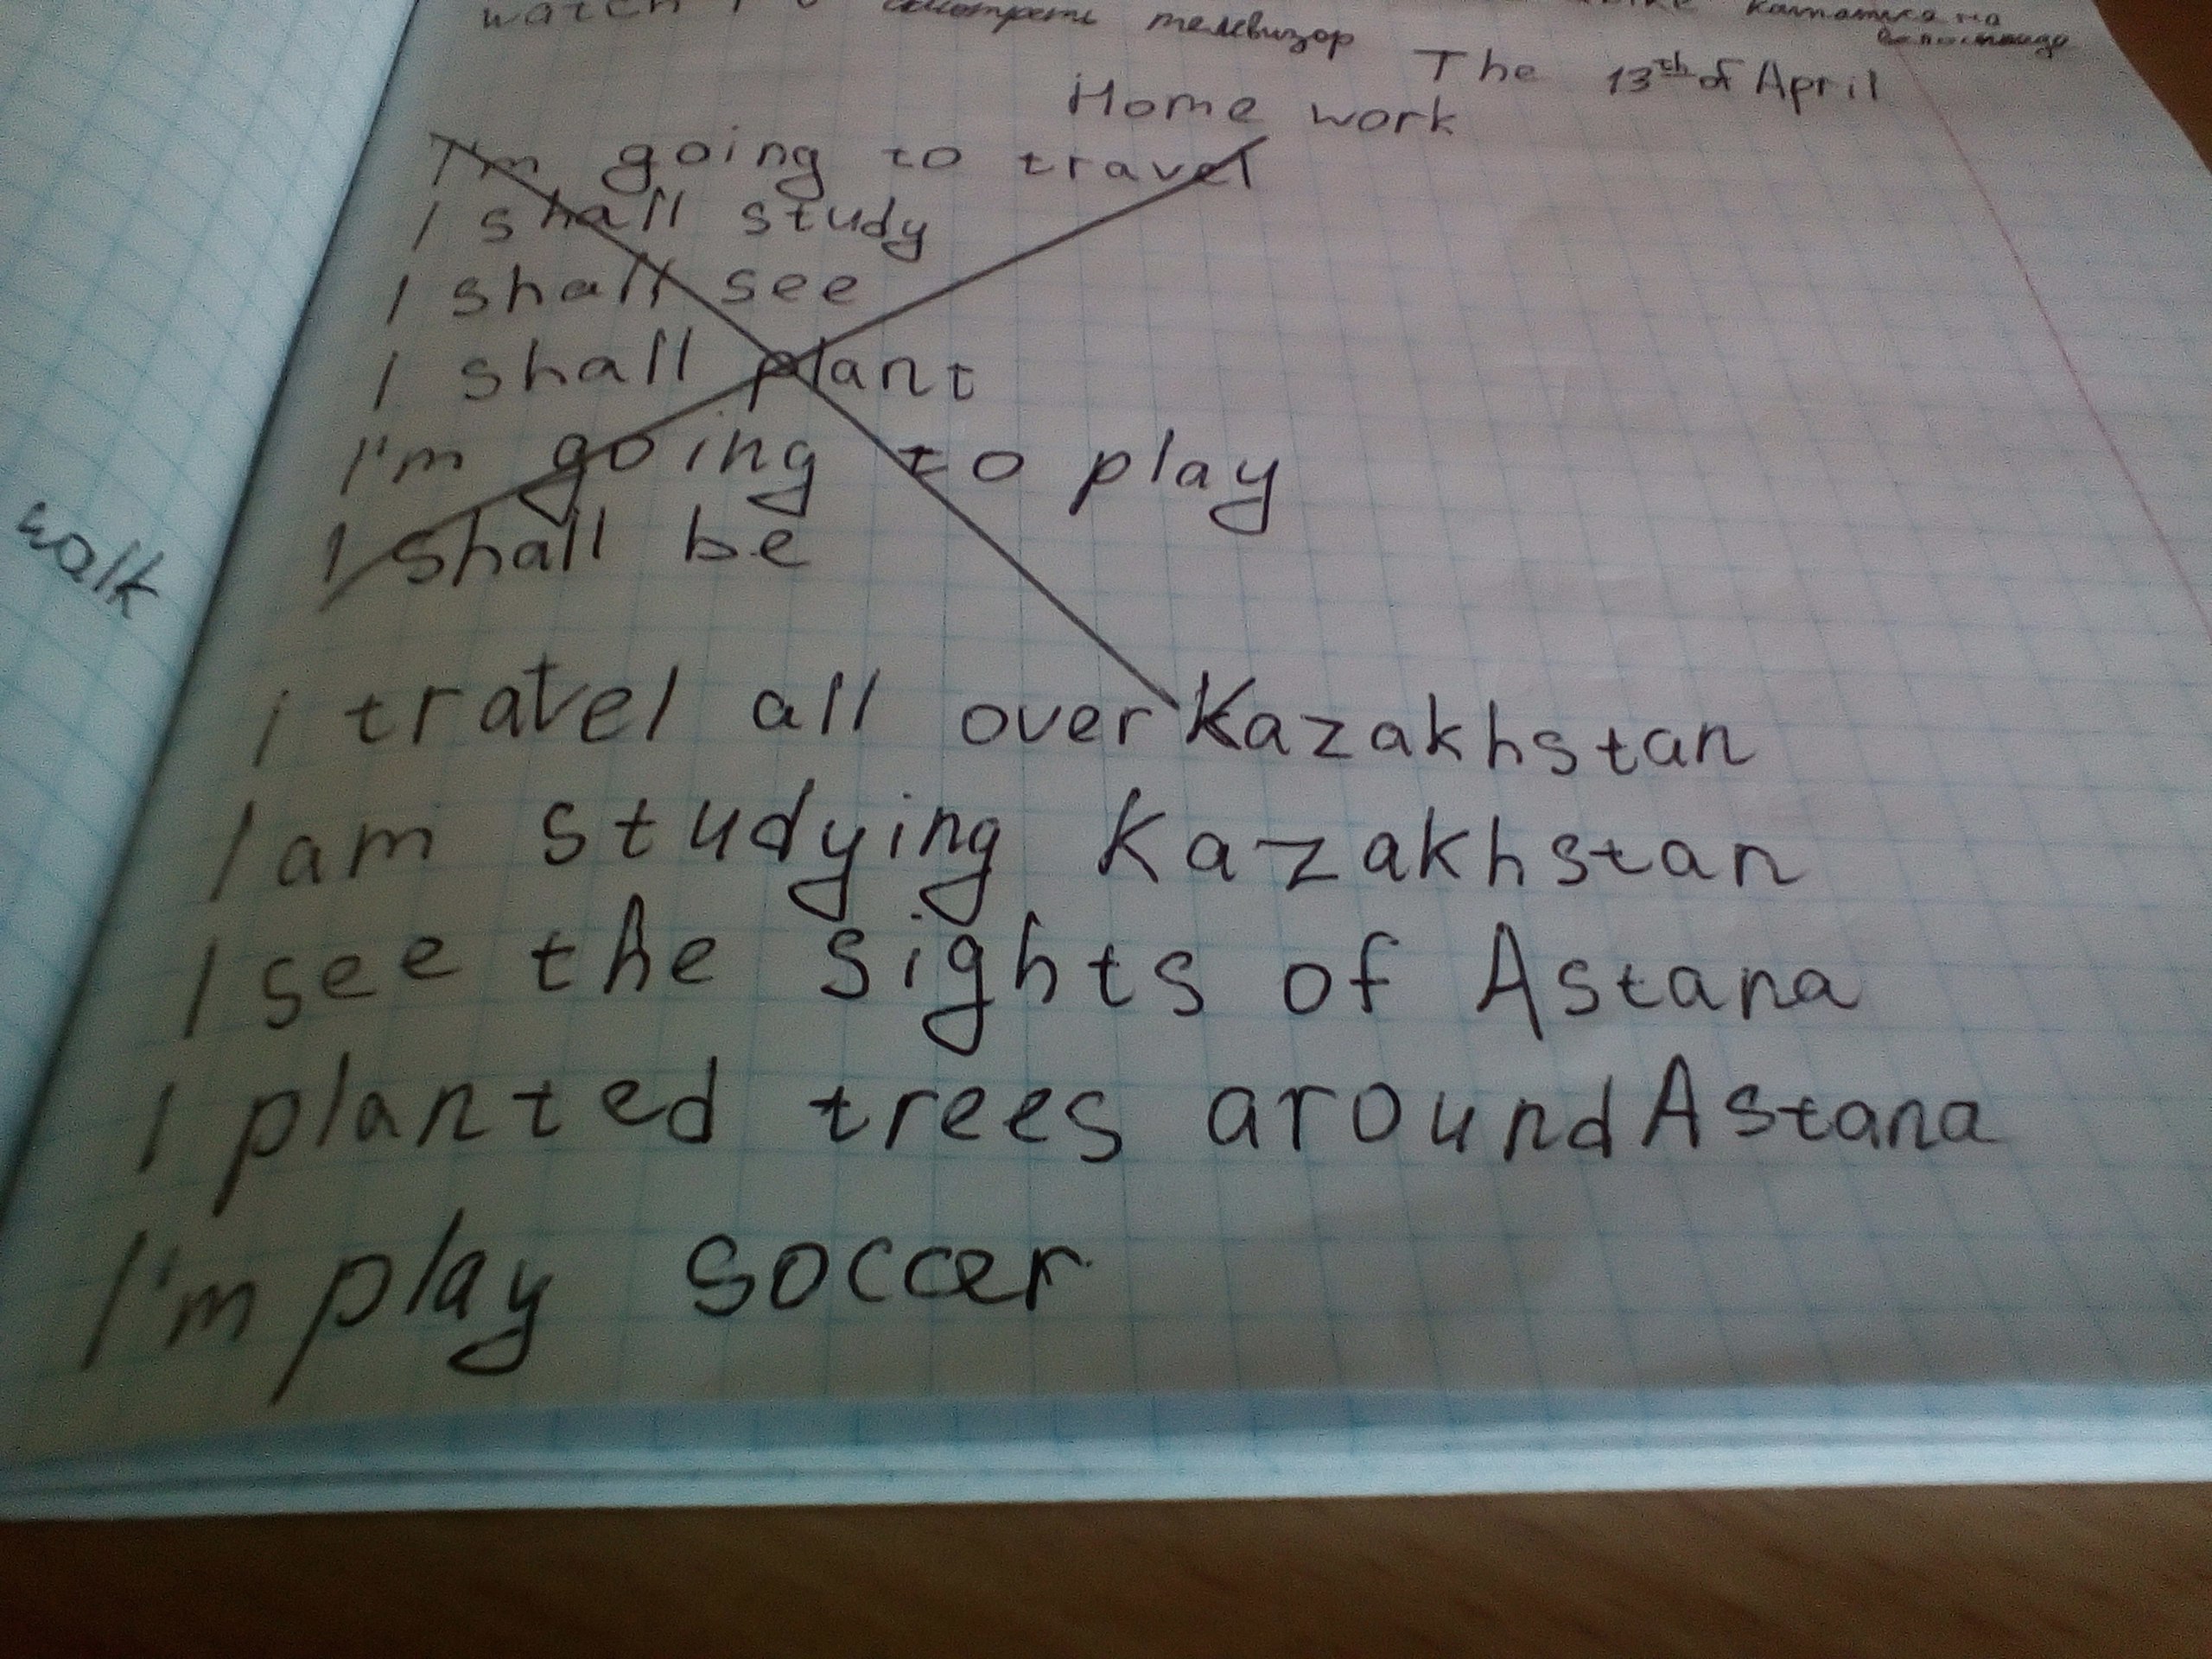 watch смотреть телевизор
The 13th of April
Home work
I'm going to travel
I shall study
I shall see
I shall plant
I'm going to play
I shall be
walk
I travel all over Kazakhstan
I am studying Kazakhstan
I see the sights of Astana
I planted trees around Astana
I'm play soccer